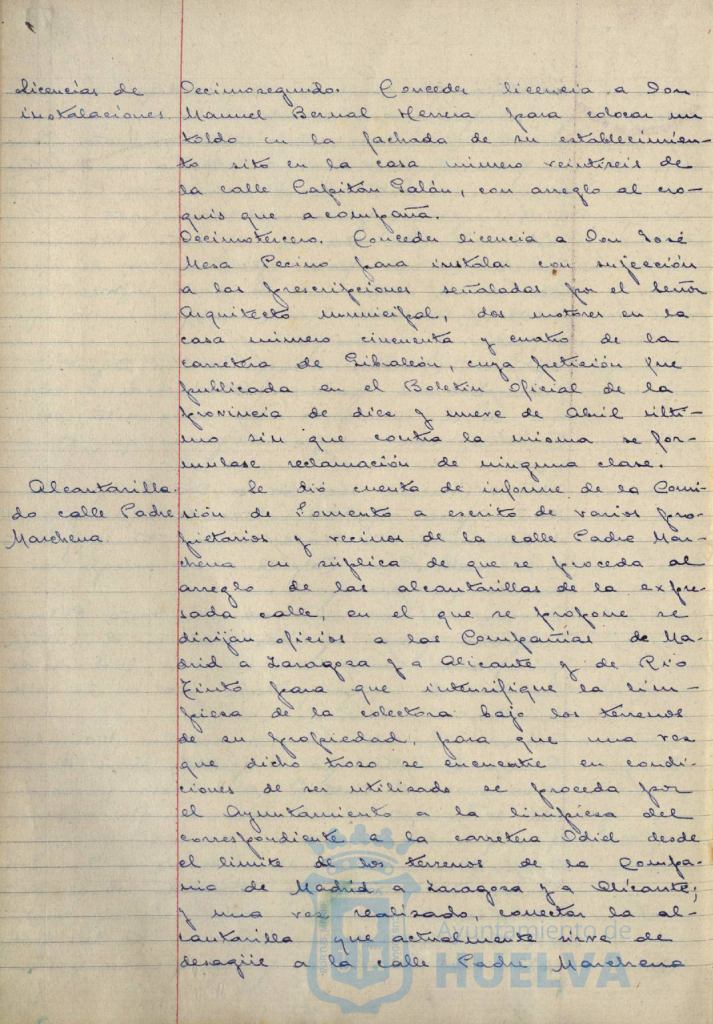 Licencias de
instalaciones.
Decimosegundo. Conceder licencia a Don
Manuel Bernal Herrera para colocar un
toldo en la fachada de su establecimien-
to sito en la casa número veintiseis de
la calle Capitán Galán, con arreglo al cro-
quis que acompaña.
Decimotercero. Conceder licencia a Don José
Mesa Pecino para instalar con sujección
a las prescripciones señaladas por el Señor
Arquitecto municipal, dos motores en la
casa número cincuenta y cuatro de la
carretera de Gibraleón, cuya petición fue
publicada en el Boletín Oficial de la
provincia de diez y nueve de Abril últi-
mo sin que contra la misma se for-
mulase reclamación de ninguna clase.
Alcantarilla-
do calle Padre
Marchena
Se dió cuenta de informe de la Comi-
sión de Fomento a escrito de varios pro-
pietarios y vecinos de la calle Padre Mar-
chena en súplica de que se proceda al
arreglo de las alcantarillas de la expre-
sada calle, en el que se propone se
dirijan oficios a las Compañías de Ma-
drid a Zaragoza y a Alicante y de Rio
Tinto para que intensifique la lim-
pieza de la colectora bajo los terrenos
de su propiedad, para que una vez
que dicho trozo se encuentre en condi-
ciones de ser utilizado se proceda por
el Ayuntamiento a la limpieza del
correspondiente a la carretera Odiel desde
el límite de los terrenos de la Compa-
ñia de Madrid a Zaragoza y a Alicante;
y una vez realizado, conectar la al-
cantarilla que actualmente sirve de
desagüe a la calle Padre Marchena
Ayuntamiento de
HUELVA